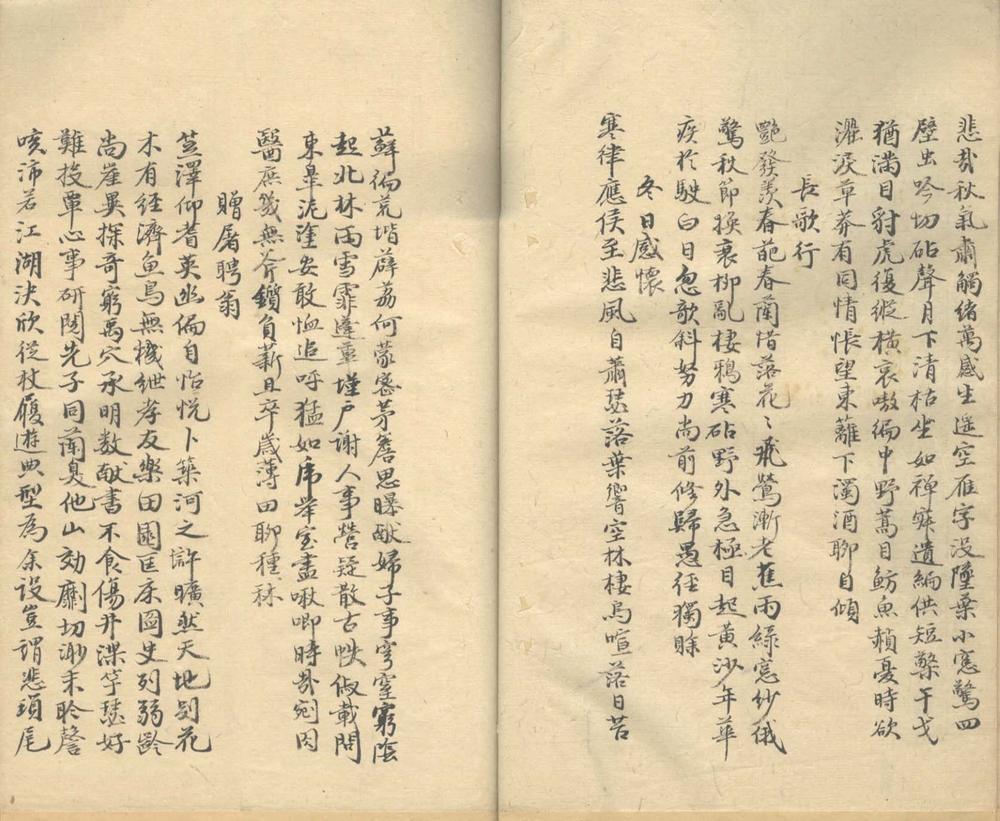 悲哉秋氣肅觸緒萬感生遥空雁字没墜葉小窓驚四
壁虫吟切砧聲月下清枯坐如禪寂遺編供短檠干戈
猶滿目豺虎復縱横哀嗷編中野蒿目魴魚赬憂時欲
濺淚草莽有同情悵望東籬下濁酒聊自傾
長歌行
艷發羨春葩春蘭惜落花〻飛鶯漸老蕉雨緑窓紗俄
驚秋節換衰柳亂棲鴉寒砧野外急極目起黄沙年華
疾於駛白日忽欹斜努力尚前修歸愚徑獨賖
冬日感懷
寒律應侯至悲風自蕭瑟落葉響空林棲烏喧落日苔
蘚徧荒堦薜荔何蒙密茅簷思曝献婦子事穹窒窮陰
起北林雨雪霏蓬蓽墐户謝人事營疑散古帙俶載問
東皐泥塗安敢恤追呼猛如虎举室盡啾唧時哉宛肉
醫庶幾無斧鑕負薪且卒歲薄田聊種秫
贈屠聘翁
笠澤仰耆英幽偏自怡悦卜築河之滸曠然天地别花
木有經濟魚鳥無機紲孝友樂田園匡床圖史列弱齡
尚崖異探奇窮禹穴承明数献書不食傷井渫竽瑟好
難投單心事研閲先子同蘭臭他山効劘切渺末聆謦
咳沛若江湖决欣從杖履遊典型為余設豈謂悲瑣尾